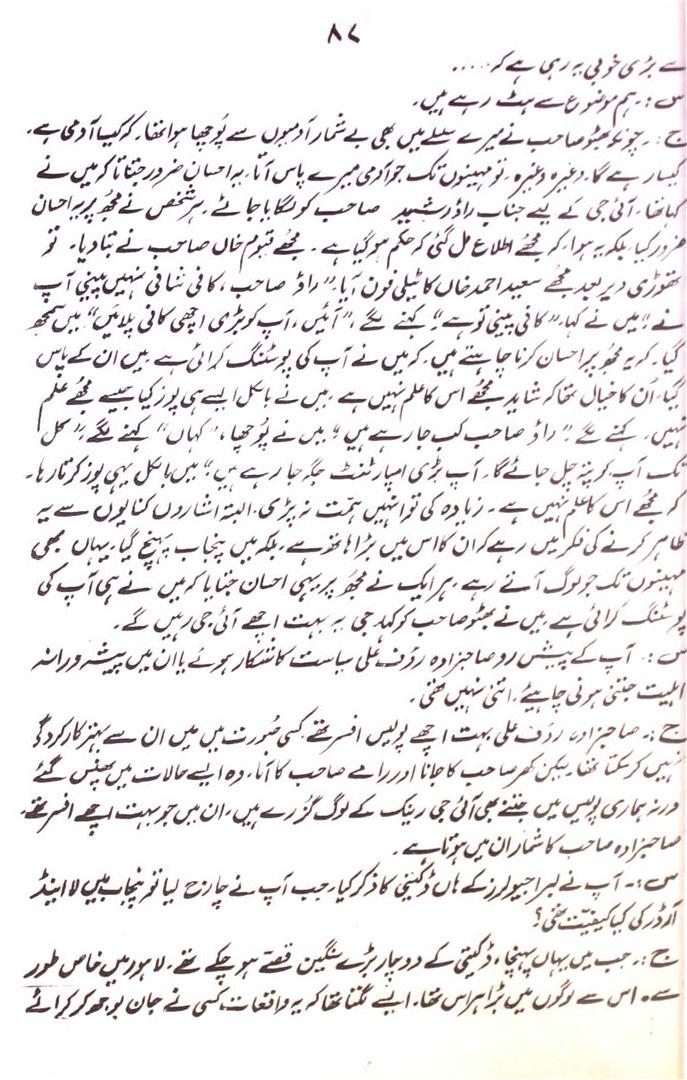 ۸۷
سے بڑی خوبی یہ رہی ہے کہ.....
س :۔ ہم موضوع سے ہٹ رہے ہیں۔
ج :۔ چونکہ بھٹو صاحب نے میرے سلسلے میں بھی بے شمار آدمیوں سے پوچھا ہوا تھا۔ کہ کیسا آدمی ہے۔
کیسا رہے گا۔ وغیرہ وغیرہ ۔ تو مہینوں تک جو آدمی میرے پاس آتا۔ یہ احسان ضرور جتاتا کہ میں نے
کہا تھا۔ آئی جی کے لیے جناب راؤ رشید صاحب کو لگایا جائے۔ ہر شخص نے مجھ پر یہ احسان
ضرور کیا بلکہ یہ ہوا، کہ مجھے اطلاع مل گئی کہ حکم ہو گیا ہے ۔ مجھے قیوم خاں صاحب نے بتا دیا۔ تو
تھوڑی دیر بعد مجھے سعید احمد خاں کا ٹیلی فون آیا۔ "راؤ صاحب ، کافی شافی نہیں پینی آپ
نے" میں نے کہا۔ "کافی پینی تو ہے" کہنے لگے، "آئیں، آپ کو بڑی اچھی کافی پلائیں" میں سمجھ
گیا۔ کہ یہ مجھ پر احسان کرنا چاہتے ہیں۔ کہ میں نے آپ کی پوسٹنگ کرائی ہے میں ان کے پاس
گیا۔ اُن کا خیال تھا کہ شاید مجھے اس کا علم نہیں ہے ۔ میں نے بالکل ایسے ہی پوز کیا جیسے مجھے علم
نہیں۔ کہنے لگے۔ "راؤ صاحب کب جا رہے ہیں؟" میں نے پوچھا، "کہاں" کہنے لگے، "کل
تک آپ کو پتہ چل جائے گا۔ آپ بڑی امپارٹنٹ جگہ جا رہے ہیں" میں بالکل یہی پوز کرتا رہا۔
کہ مجھے اس کا علم نہیں ہے ۔ زیادہ کی تو انہیں ہمت نہ پڑی۔ البتہ اشاروں کنایوں سے یہ
ظاہر کرنے کی فکر میں رہے کہ ان کا اس میں بڑا ہاتھ ہے، بلکہ میں پنجاب پہنچ گیا۔ یہاں بھی
مہینوں تک جو لوگ آتے رہے ۔ ہر ایک نے مجھ پر یہی احسان جتایا کہ میں نے ہی آپ کی
پوسٹنگ کرائی ہے۔ میں نے بھٹو صاحب کو کہا۔ جی یہ بہت اچھے آئی جی رہیں گے۔
س :۔ آپ کے پیش رو صاحبزادہ رؤف علی سیاست کا شکار ہوئے یا ان میں پیشہ ورانہ
اہلیت جتنی ہونی چاہیئے، اتنی نہیں تھی۔
ج :۔ صاحبزادہ رؤف علی بہت اچھے پولیس افسر تھے۔ کسی صورت میں میں ان سے بہتر کارکردگی
نہیں کر سکتا تھا۔ لیکن کھر صاحب کا جانا اور رامے صاحب کا آنا، وہ ایسے حالات میں پھنس گئے
ورنہ ہماری پولیس میں جتنے بھی آئی جی رینک کے لوگ گزرے ہیں، ان میں جو بہت اچھے افسر تھے
صاحبزادہ صاحب کا شمار ان میں ہوتا ہے ۔
س :۔ آپ نے لبرا جیولرز کے ہاں ڈکیتی کا ذکر کیا، جب آپ نے چارج لیا تو پنجاب میں لا اینڈ
آرڈر کی کیا کیفیت تھی؟
ج :۔ جب میں یہاں پہنچا، ڈکیتی کے دو چار بڑے سنگین قصّے ہو چکے تھے۔ لاہور میں خاص طور
سے۔ اس سے لوگوں میں بڑا ہراس تھا۔ ایسے لگتا تھا کہ یہ واقعات کسی نے جان بوجھ کر کرائے